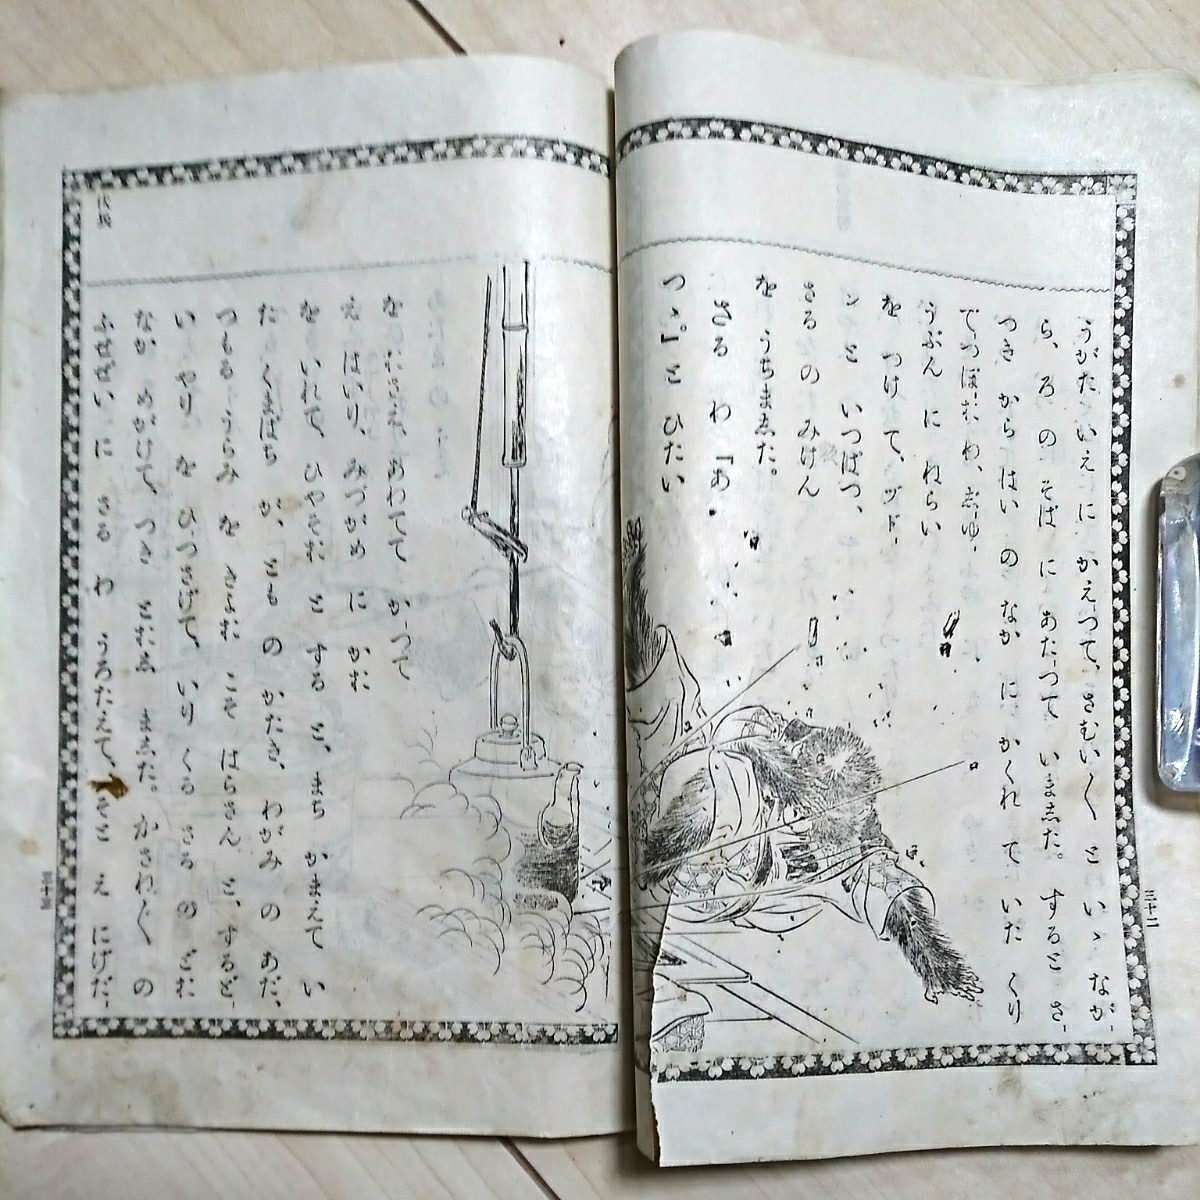 うがた いえ に かえつて、さむい〱 と いゝ なが-
ら、ろ の そば に あたつて いました。すると さ-
つき から はい の なか に かくれ て いた くり
てつぽーだ わ、しゆ-
うぶん に ねらい
を つけ て、ヅドー
ン と いつぱつ、
さる の みけん
を うちました。
さる わ「あ
つゝ。」と ひたい
三十二
を おさえ、あわてて かつて
え はいり、みづがめ に かた
を いれて、ひやそー と する と、まち かまえて い
た くまばち が、とも の かたき、わがみ の あだ、
つもる うらみ を きょー こそ はらさん と、するどー
い やり を ひつさげて、いりくる さる の どー
なか めがけて、つき とーし ました。かさねがさね の
ふせい に さる わ うろたえて、そと え にげだ-
三十三